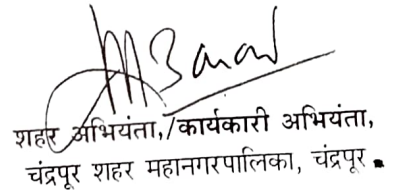 शहर अभियंता,/कार्यकारी अभियंता,
चंद्रपूर शहर महानगरपालिका, चंद्रपूर.